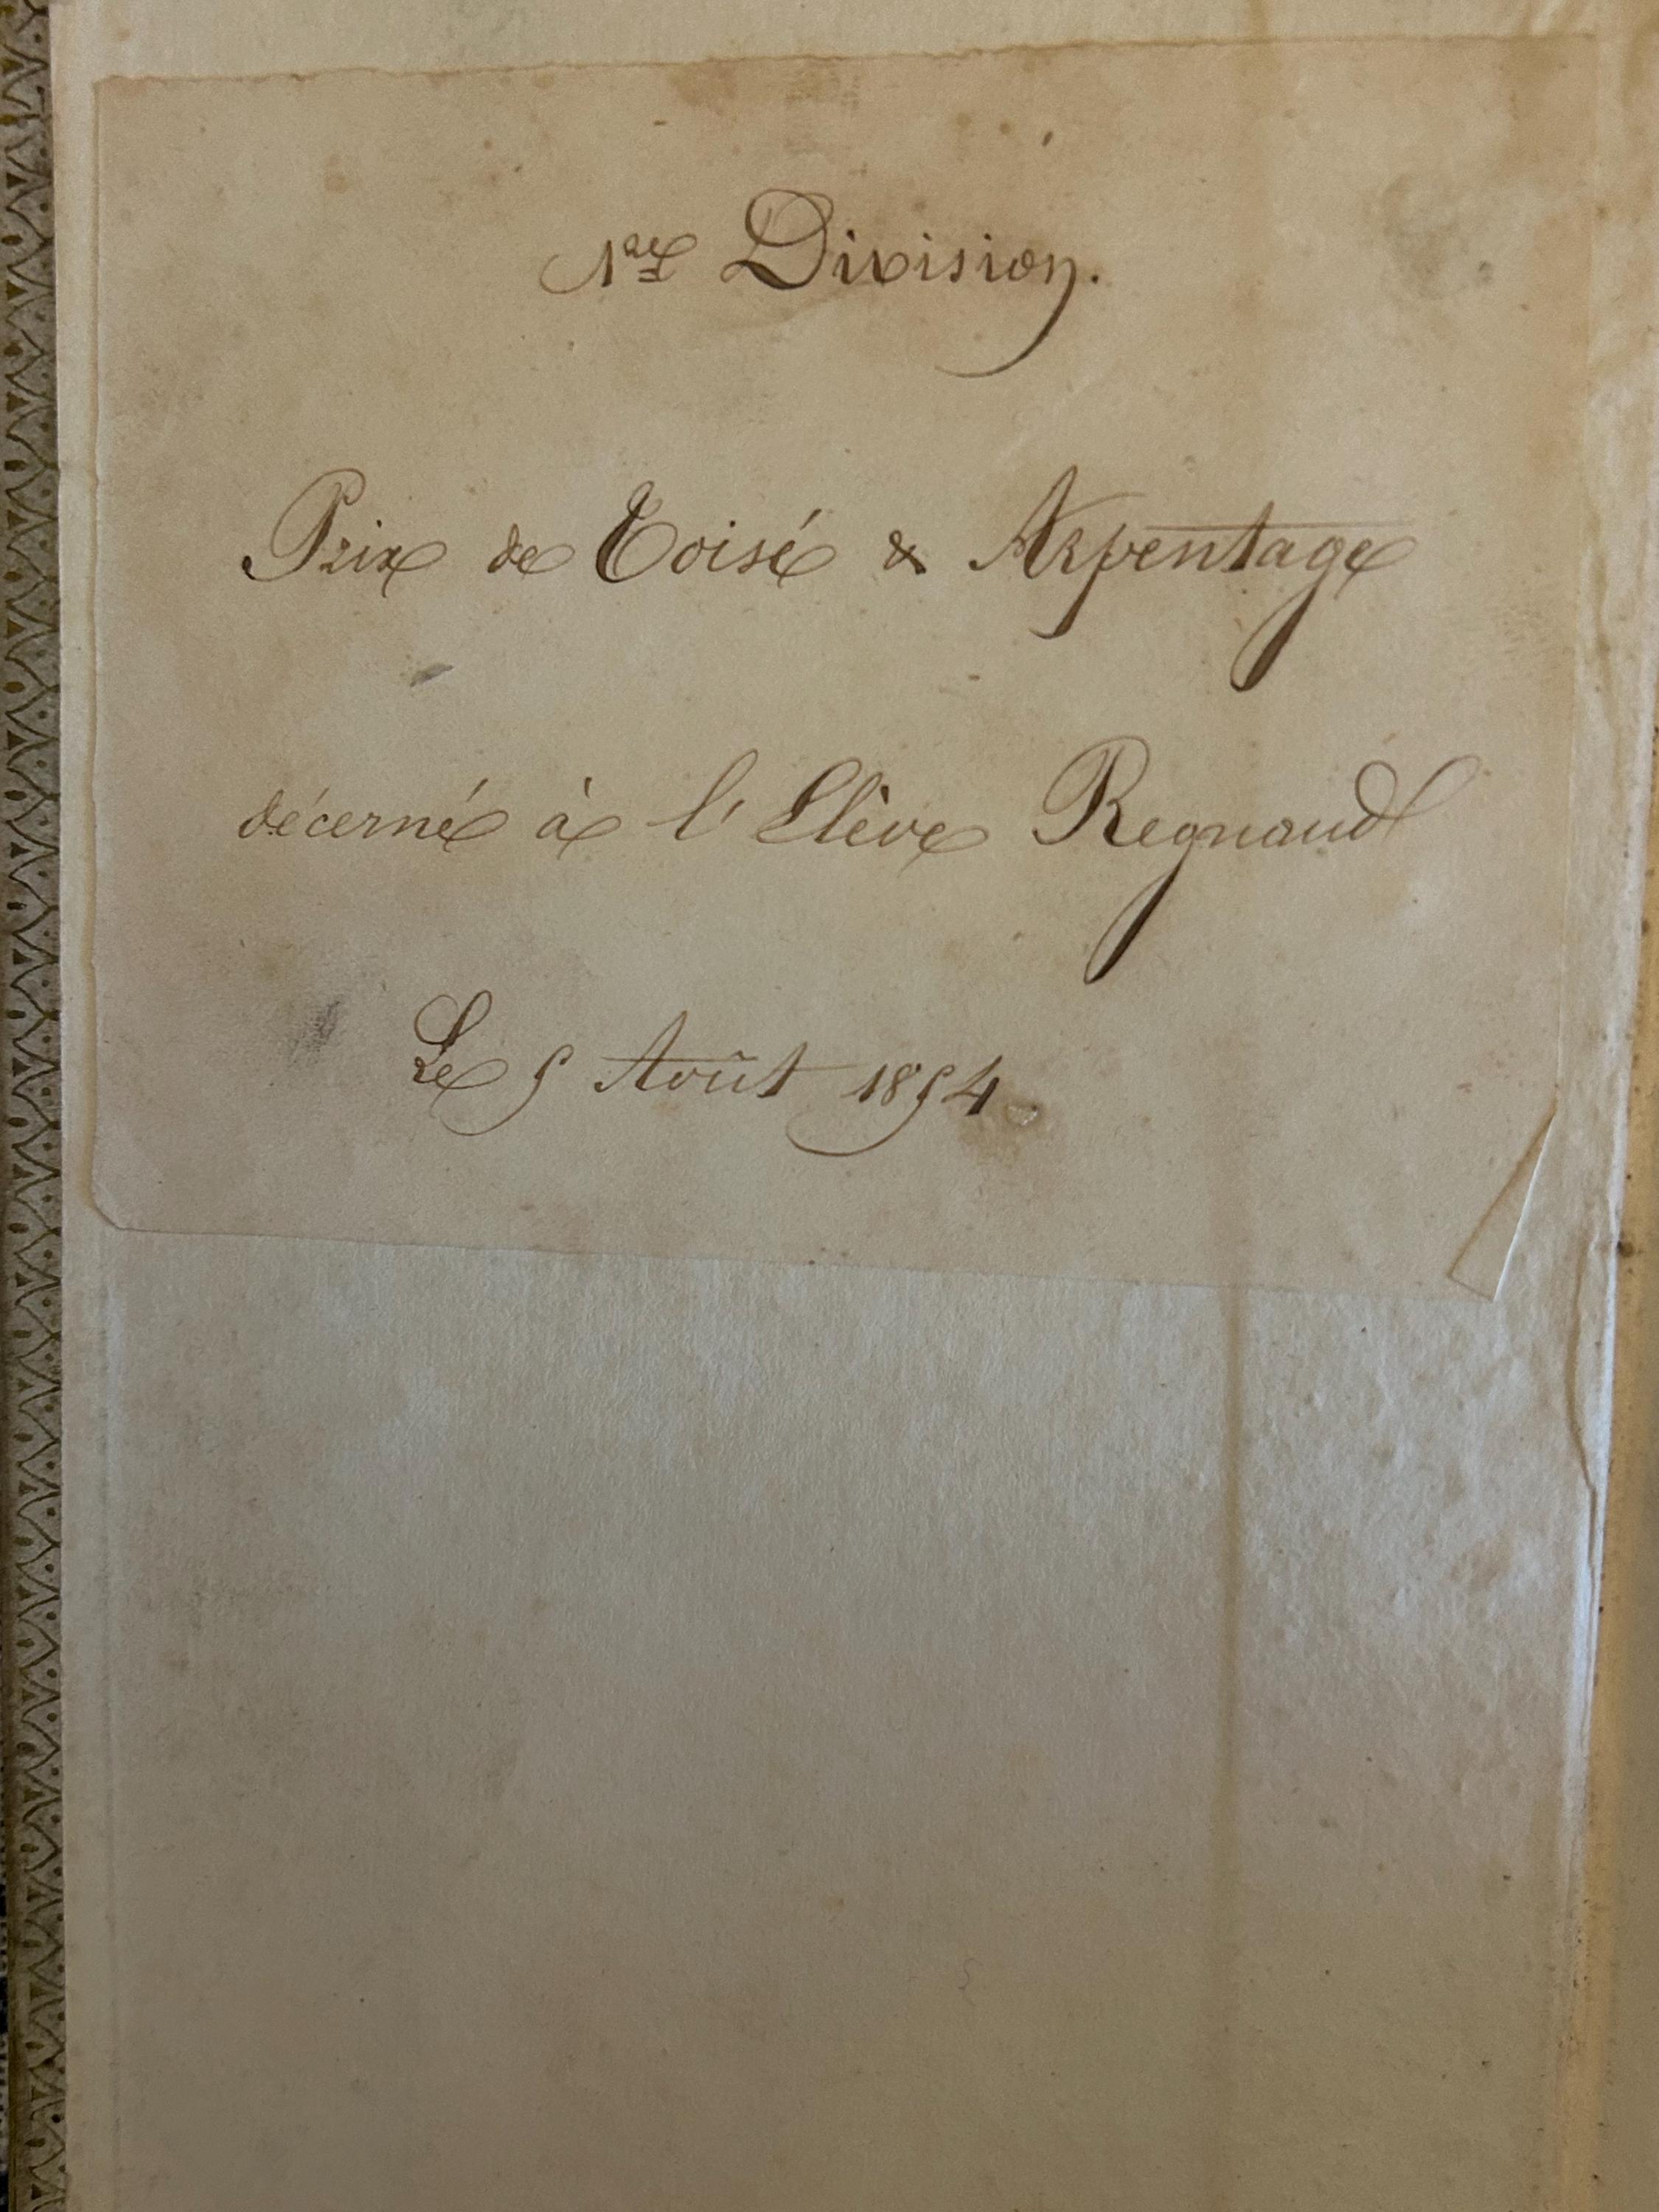 1ère Division.
Prix de Toisé & Arpentage
décerné à l'Elève Regnaud
Le 5 Août 1854